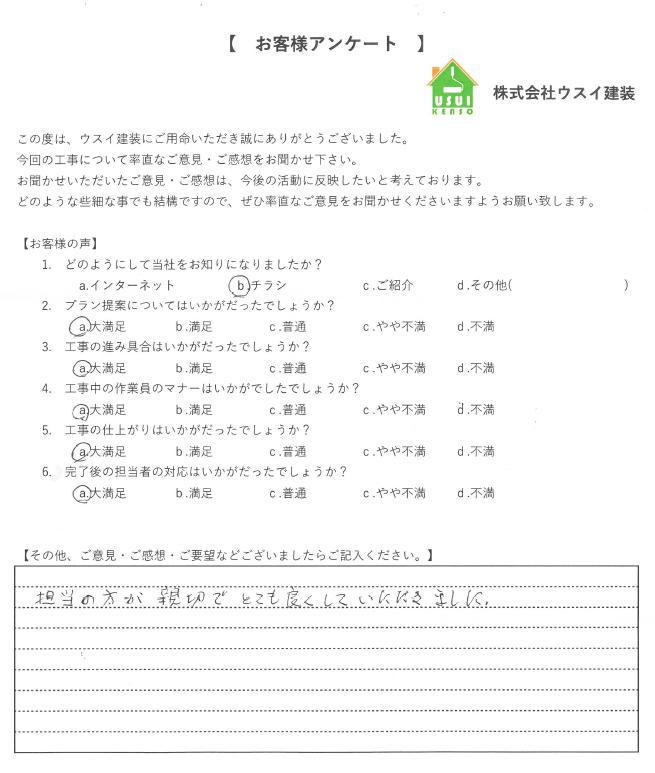 【 お客様アンケート 】
USUI
KENSO
株式会社ウスイ建装
この度は、ウスイ建装にご用命いただき誠にありがとうございました。
今回の工事について率直なご意見・ご感想をお聞かせ下さい。
お聞かせいただいたご意見・ご感想は、今後の活動に反映したいと考えております。
どのような些細な事でも結構ですので、ぜひ率直なご意見をお聞かせくださいますようお願い致します。
【お客様の声】
1. どのようにして当社をお知りになりましたか？
a.インターネット b.チラシ c.ご紹介 d.その他( )
2. プラン提案についてはいかがだったでしょうか？
a.大満足 b.満足 c.普通 c.やや不満 d.不満
3. 工事の進み具合はいかがだったでしょうか？
a.大満足 b.満足 c.普通 c.やや不満 d.不満
4. 工事中の作業員のマナーはいかがでしたでしょうか？
a.大満足 b.満足 c.普通 c.やや不満 d.不満
5. 工事の仕上がりはいかがだったでしょうか？
a.大満足 b.満足 c.普通 c.やや不満 d.不満
6. 完了後の担当者の対応はいかがだったでしょうか？
a.大満足 b.満足 c.普通 c.やや不満 d.不満
【その他、ご意見・ご感想・ご要望などございましたらご記入ください。】
担当の方が親切でとても良くしていただきました。